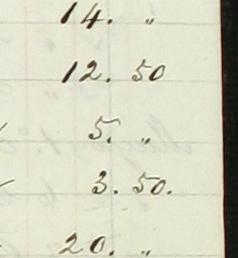 14. "
12. 50
5. "
3. 50.
20. "